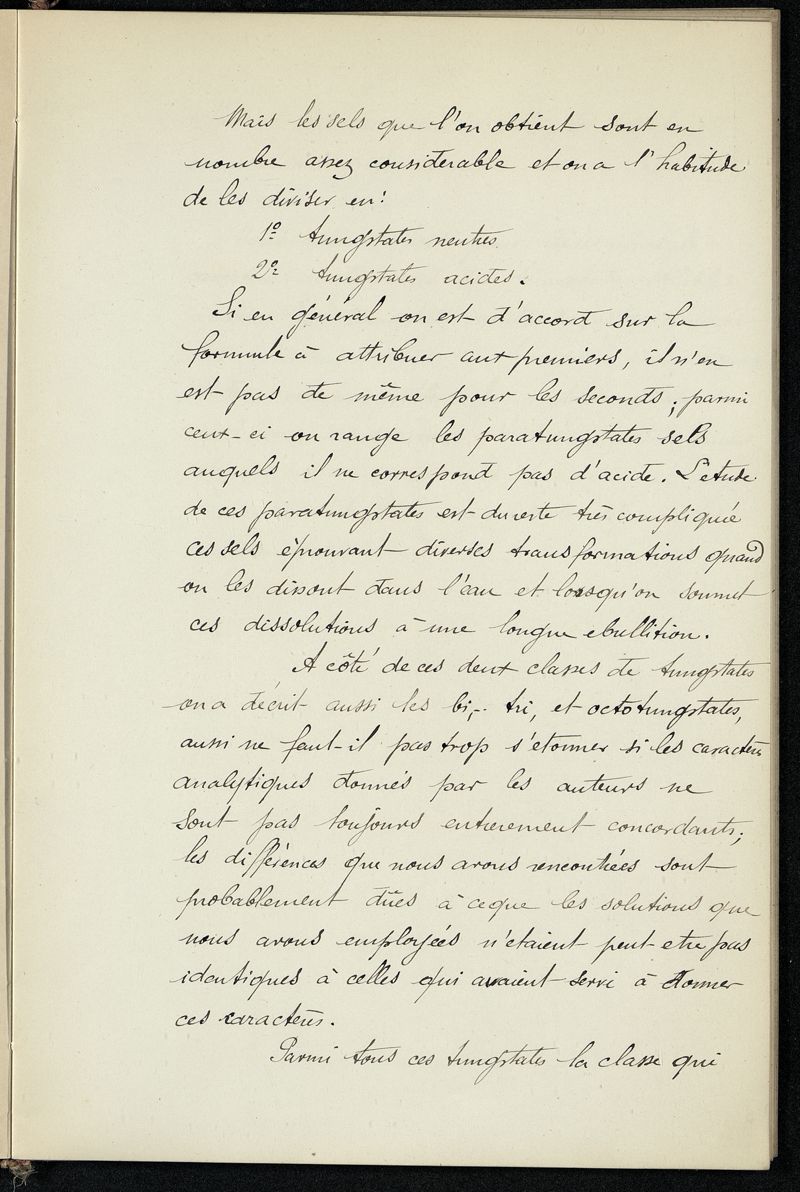 Mais les sels que l'on obtient sont en
nombre assez considerable et on a l'habitude
de les diviser en:
1º tungstates neutres
2º tungstates acides.
Si en général on est d'accord sur la
formule à attribuer aux premiers, il n'en
est pas de même pour les seconds; parmi
ceux-ci on range les paratungstates sels
auquels il ne correspond pas d'acide. L'etude
de ces paratungstates est du reste très compliquée
ces sels éprouvant diverses transformations quand
on les dissout dans l'eau et lorsqu'on soumet
ces dissolutions à une longue ebullition.
A côté de ces deux classes de tungstates
on a décrit aussi les bi,- tri, et octotungstates,
aussi ne faut-il pas trop s'etonner si les caractères
analytiques donnés par les auteurs ne
sont pas toujours entierement concordants;
les différences que nous avons rencontrées sont
probablement dûes à ce que les solutions que
nous avons employées n'etaient peut-etre pas
identiques à celles qui avaient servi à donner
ces caractères.
Parmi tous ces tungstates la classe qui